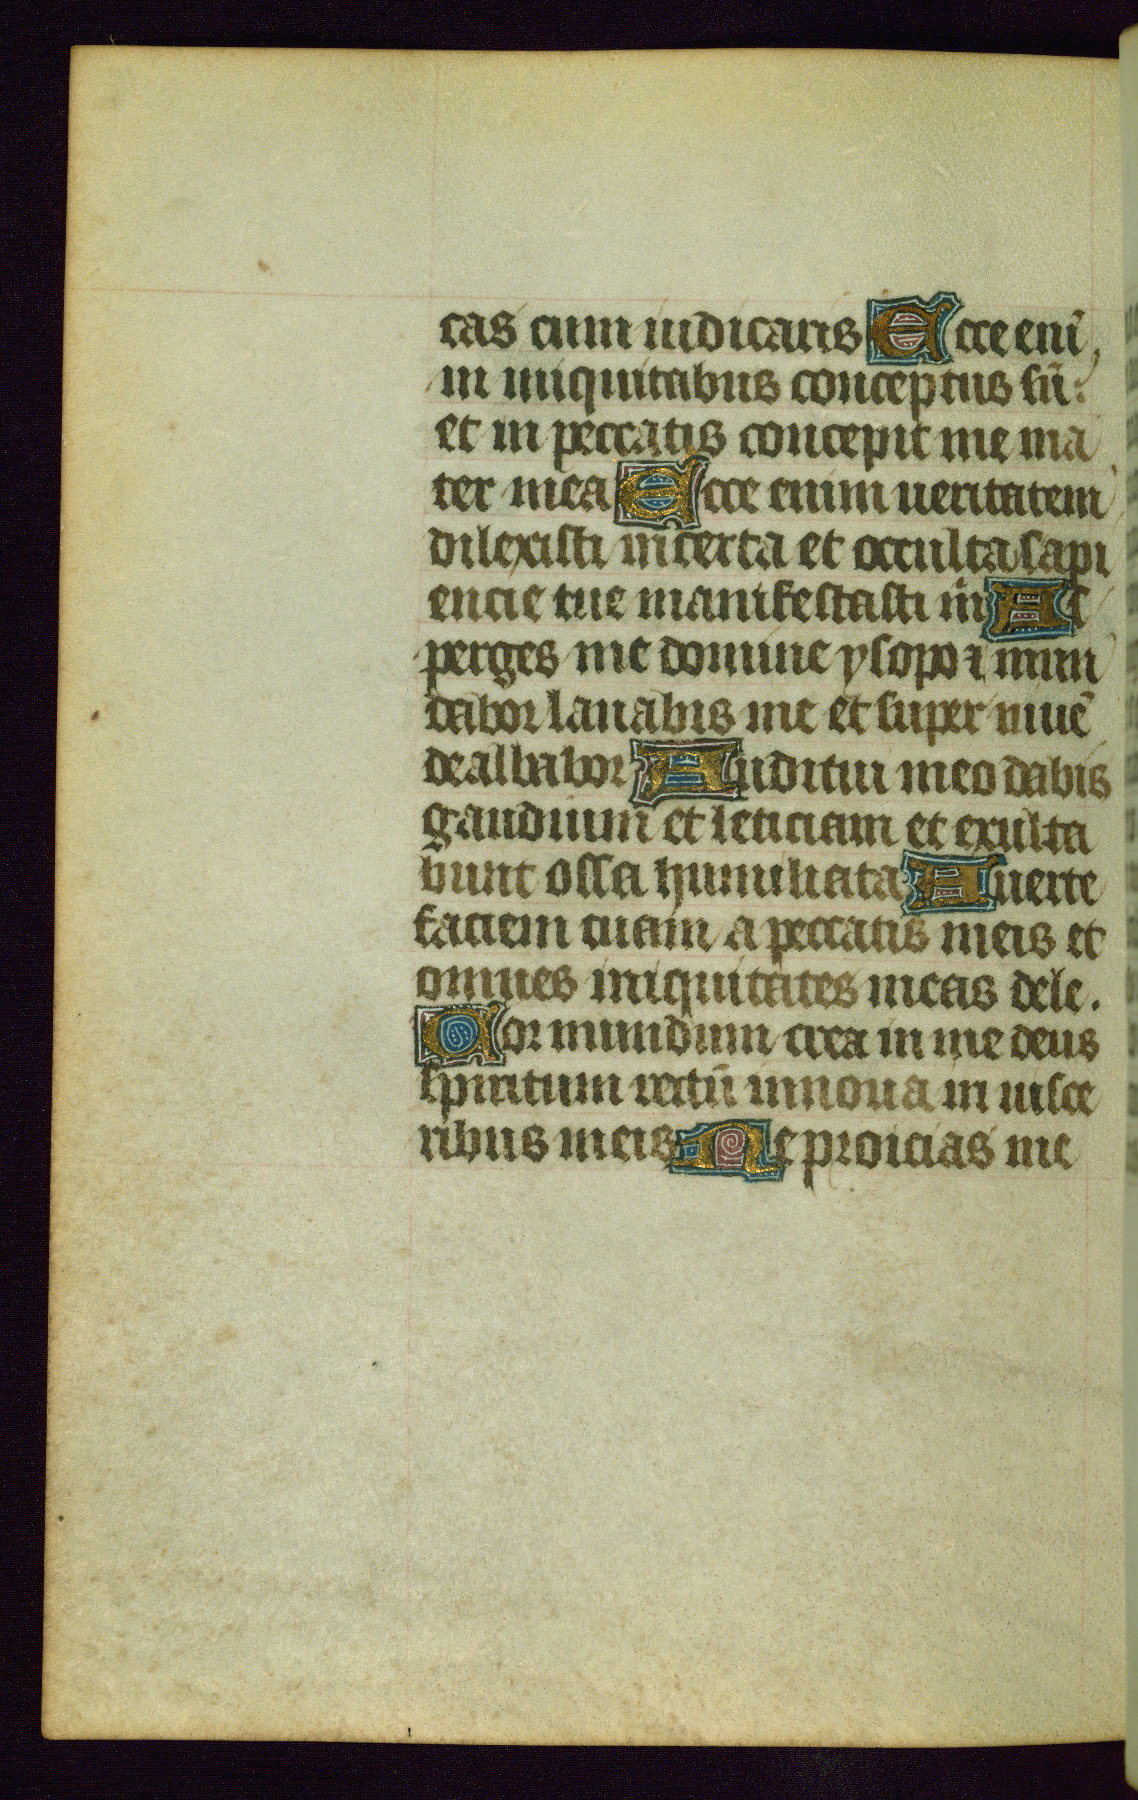 cas cum iudicaris Ecce eni̅
in iniquitabus conceptus su̅:
et in peccatis concepit me ma
ter mea Ecce enim ueritatem
dilexisti incerta et occulta sapi
encie tue manifestasti m̅ As
perges me domine ysopo ⁊ mun
dabor lauabis me et super niue̅
dealbabor Auditui meo dabis
gaudium et leticiam et exulta
bunt ossa humiliata Auerte
faciem tuam a peccatis meis et
omnes iniquitates meas dele.
Cor mundum crea in me deus
spiritum rectu̅ innoua in uisce
ribus meis Ne proicias me